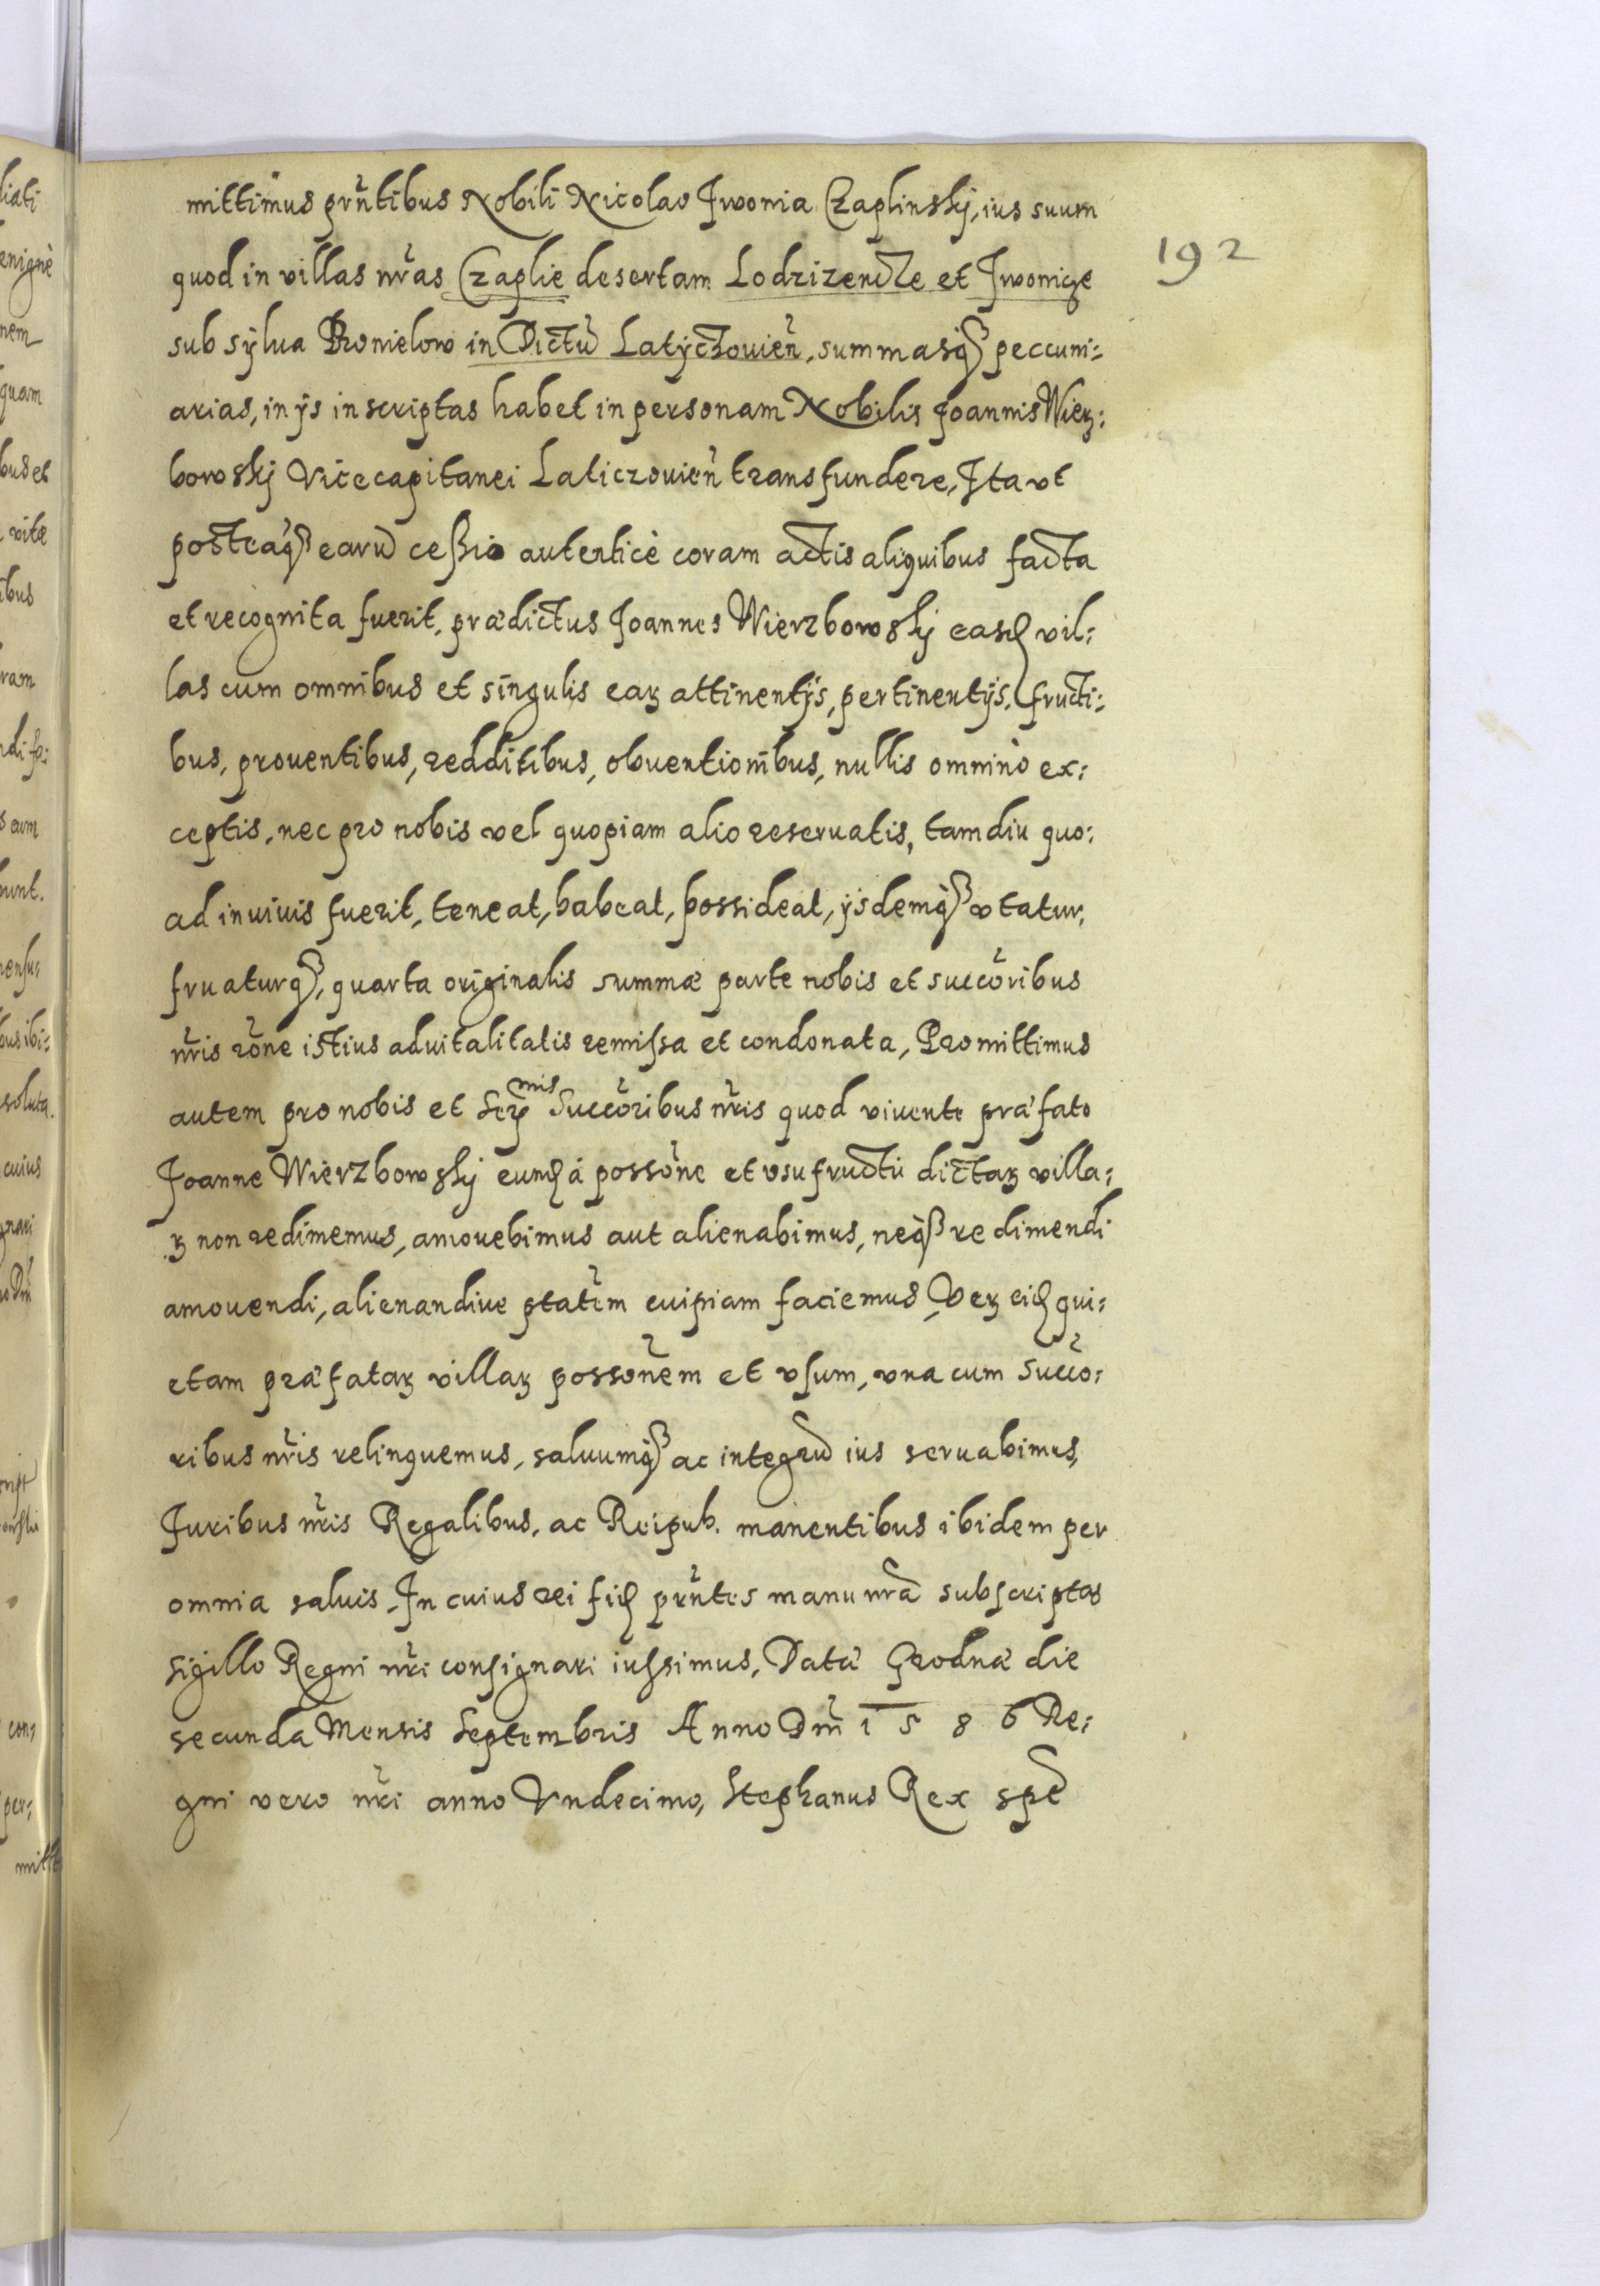 mittimus pñtibus Nobili Nicolao Jwonia Czaplinskj, ius suum
192
quod in villas ñras Czaplie desertam Lodzizencze et Jwonicze
sub sylua Bronielow in Dictũ Latyczouieñ, summasq3 peccuni:
arias, in ys inscriptas habet in personam Nobilis Joannis Wierz:
bowskj Vicecapitanei Laticzouieñ transfundere, Ita vt
posteaq3 earũ cessio autenticè coram actis aliquibus facta
et recognita fuerit, prædictus Joannes Wierzbowskj easd vil:
las cum omnibus et singulis earz attinentÿs, pertinentÿs, fructi:
bus, prouentibus, redditibus, obuentionibus, nullis omninò ex:
ceptis, nec pro nobis vel quopiam alio reseruatis, tamdiu quo:
ad in viuis fuerit, teneat, habeat, possideat, ÿsdemq3 vtatur,
fruaturq3, quarta originalis summæ parte nobis et succõribus
ñris rõne istius aduitalitatis remissa et condonata, Promittimus
autem pro nobis et Ser mis Succõribus ñris quod viuente præfato
Joanne Wierzbowskj eund à possõne et vsufructu dictarz villa:
rz non redimemus, amouebimus aut alienabimus, neq3 redimendi
amouendi, alienandiue ptatem cuipiam faciemus, Verz eid qui:
etam præfatarz villarz possõnem et vsum, vna cum Succo:
ribus ñris relinquemus, saluumq3 ac integrũ ius seruabimus,
Juribus ñris Regalibus, ac Reipub. manentibus ibidem per
omnia saluis. In cuius rei fid pñtes manu ñra subscriptas
sigillo Regni ñri consignari iussimus, Datæ Grodnæ die
secunda Mensis Septembris Anno Dñi 1 5 8 6 Re:
gni vero ñri anno Vndecimo, Stephanus Rex spt